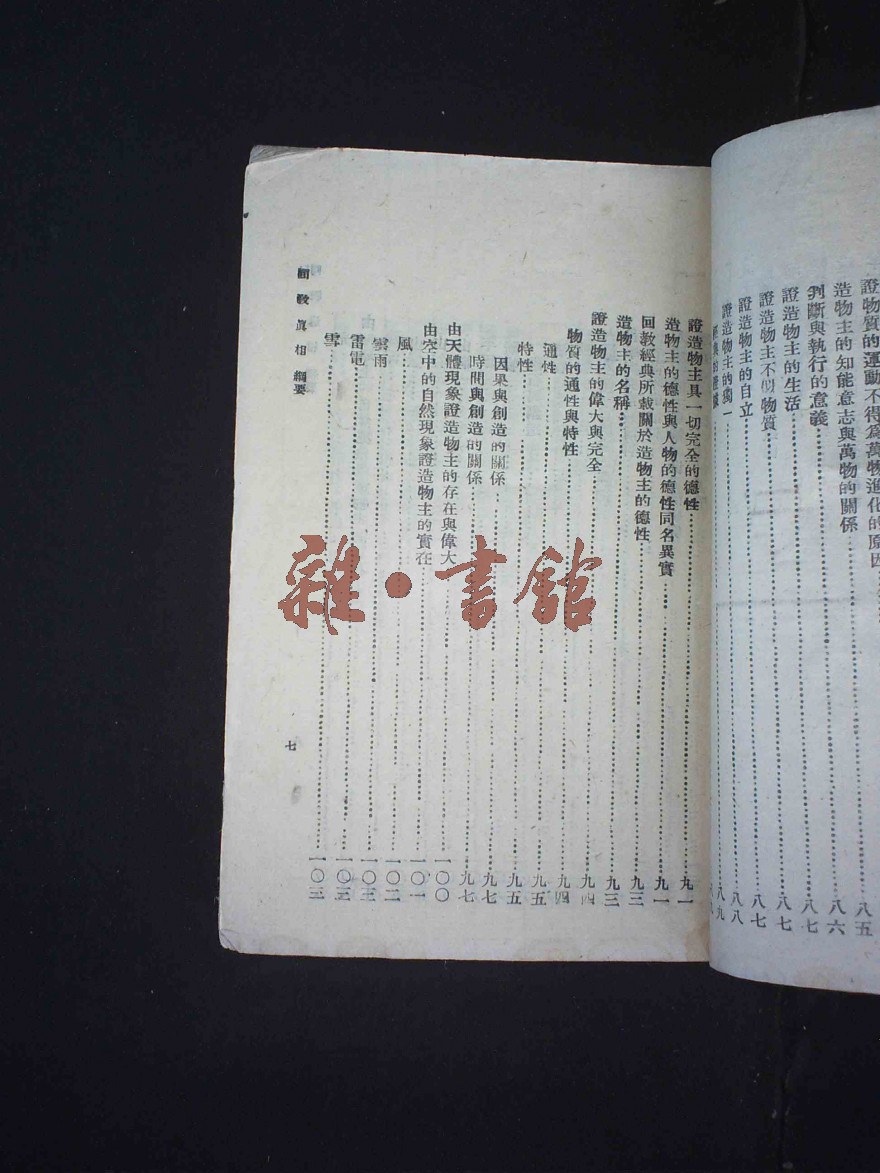 證物質的運動不得爲萬物進化的原因
八五
造物主的知能意志與萬物的關係
八六
判斷與執行的意義
八七
證造物主的生活
八七
證造物主不似物質
八七
證造物主的自立
八八
證造物主的獨一
八九
證造物主具一切完全的德性
九一
造物主的德性與人物的德性同名異實
九一
回教經典所載關於造物主的德性
九三
造物主的名稱
九三
證造物主的偉大與完全
九四
物質的通性與特性
九四
通性
九五
特性
九五
因果與創造的關係
九七
時間與創造的關係
九七
由天體現象證造物主的存在與偉大
一〇〇
由空中的自然現象證造物主的實在
一〇一
風
一〇二
雲雨
一〇三
雷電
一〇三
雪
一〇三
回教眞相 綱要
七
雜·書館